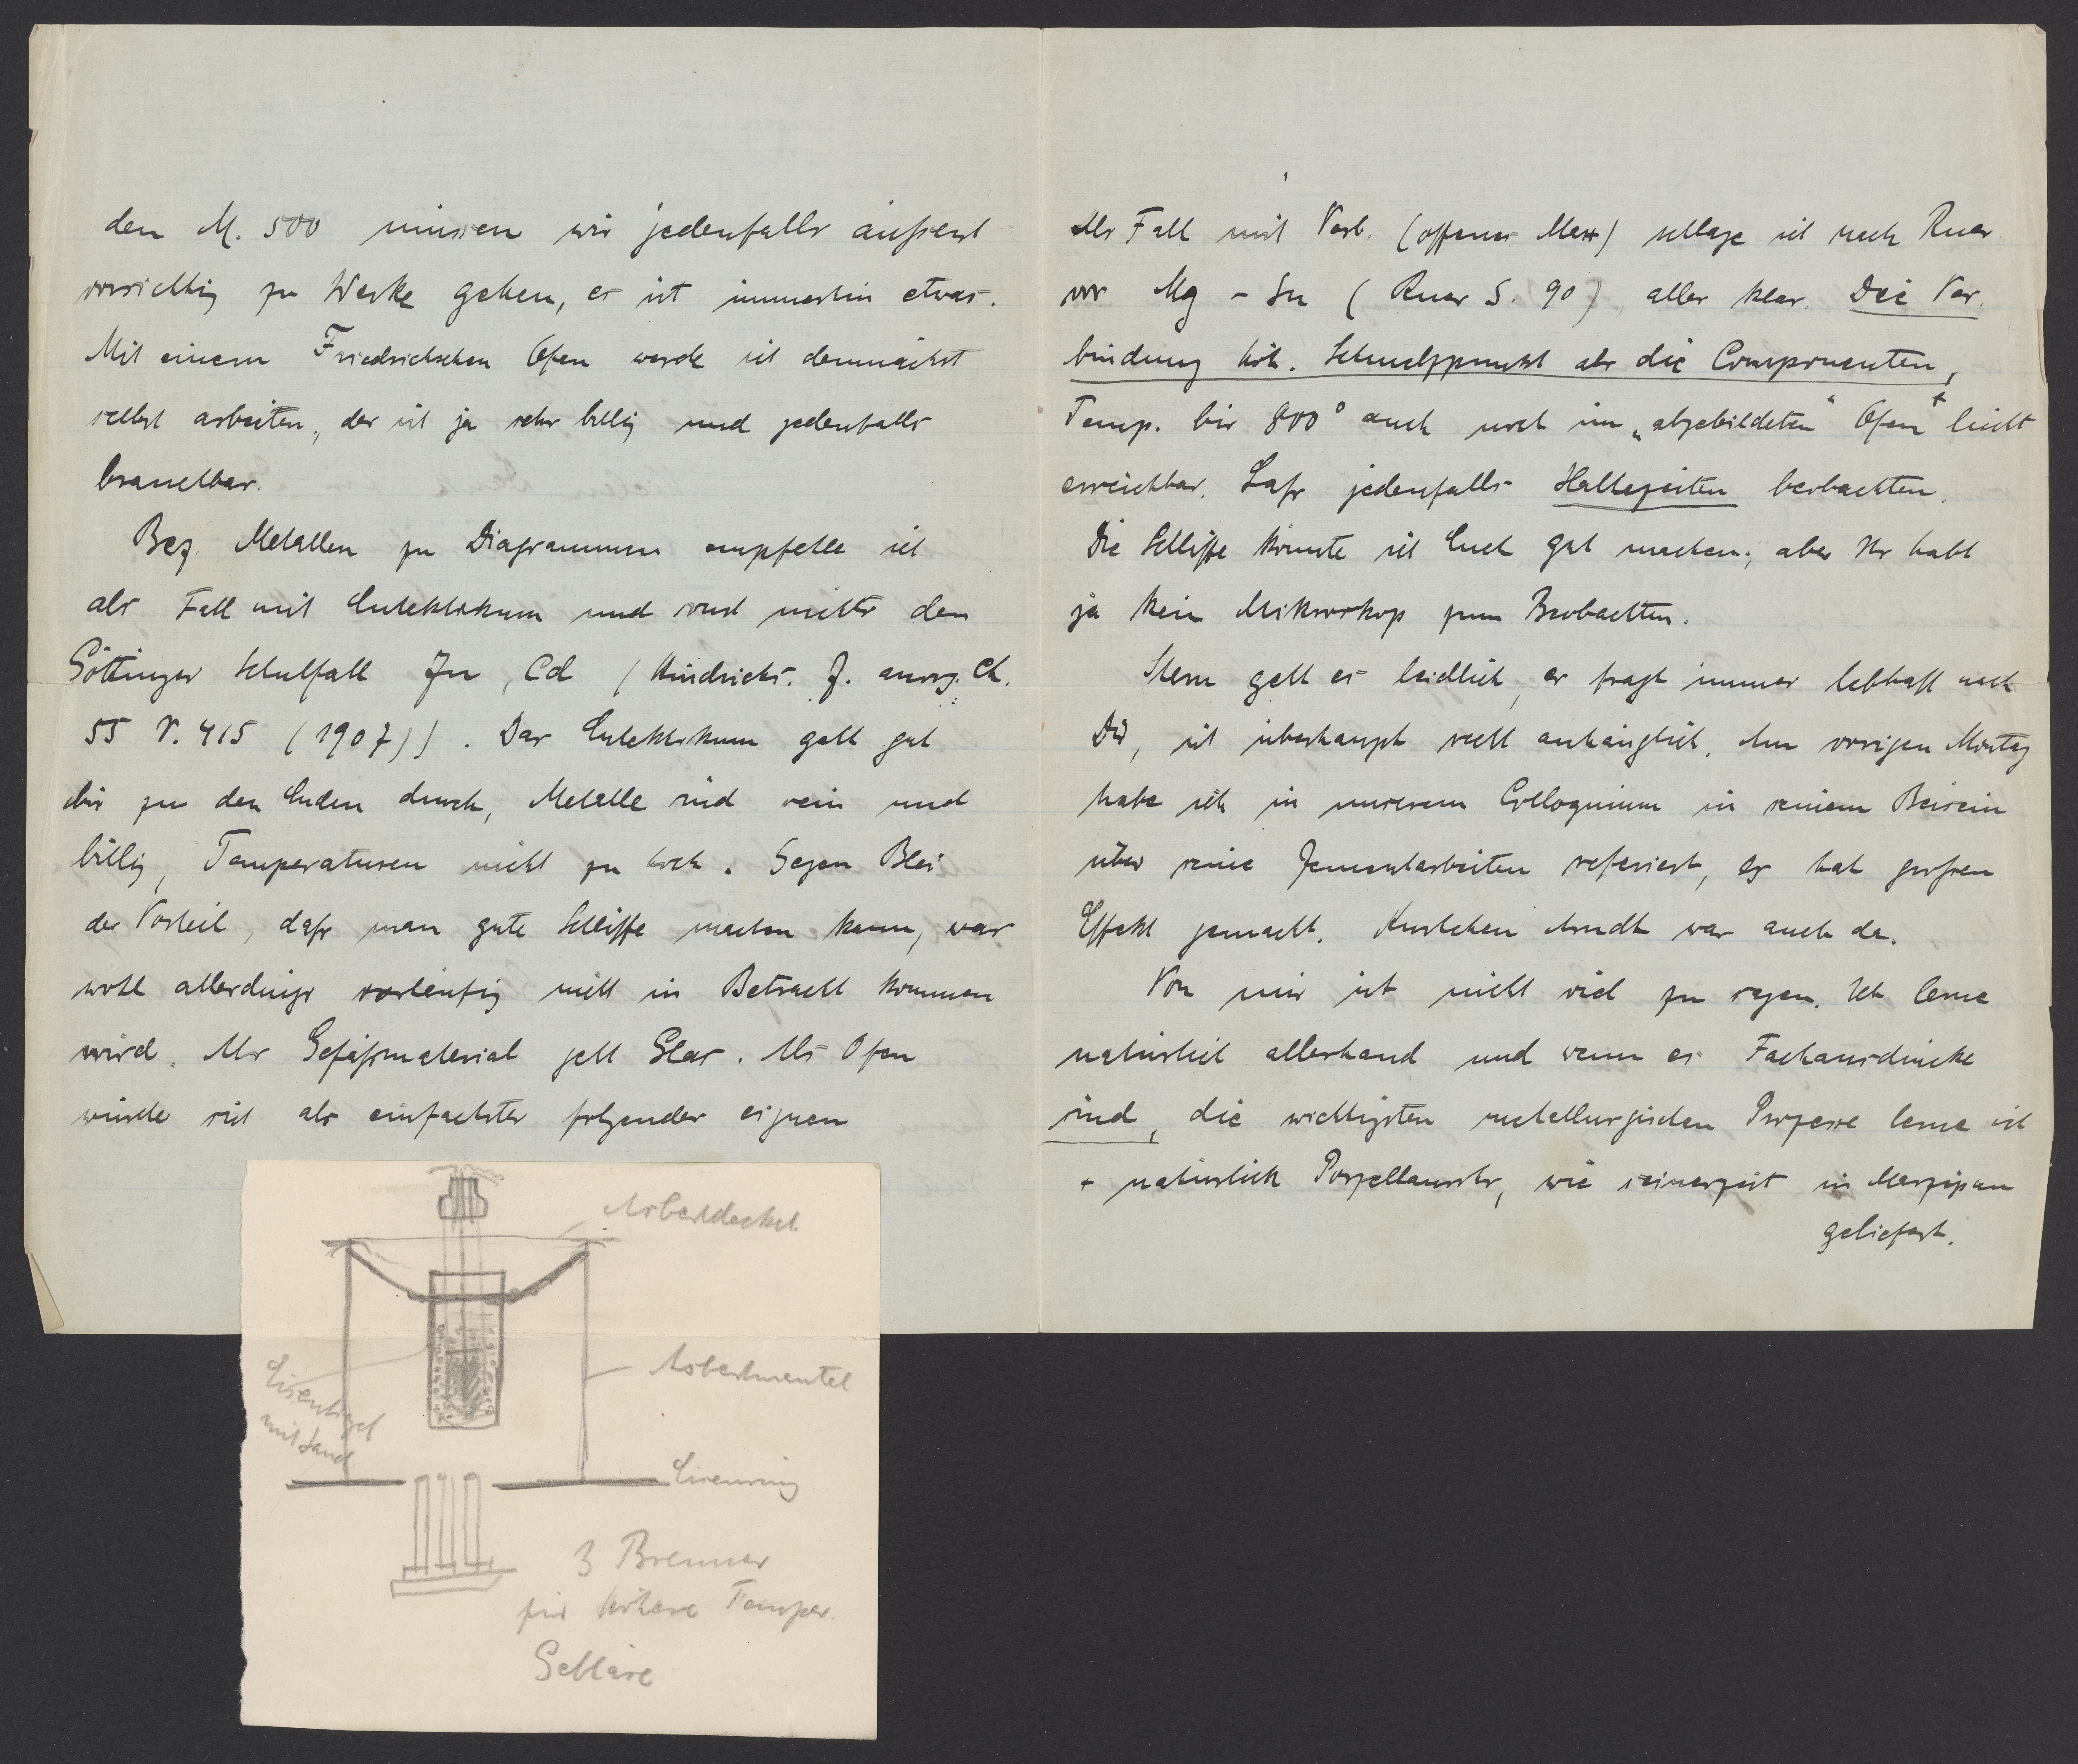 den M. 500 müssen wir jedenfalls äußerst
vorsichtig zu Werke gehen, es ist immerhin etwas.
Mit einem Friedrichschen Ofen werde ich demnächst
selbst arbeiten, der ist ja sehr billig und jedenfalls
brauchbar.
Bez. Metallen zu Diagrammen empfehle ich
als Fall mit Eutektikum und sonst nichts den
Göttinger Schulfall Zn, Cd (Hindrichs. Z. anorg. Ch.
55 V. 415 (1907)). Das Eutektikum geht gut
bis zu den Enden durch, Metalle sind rein und
billig, Temperaturen nicht zu hoch. Gegen Blei
der Vorteil, daß man gute Schliffe machen kann, was
wohl allerdings vorläufig nicht in Betracht kommen
wird. Als Gefäßmaterial geht Glas. Als Ofen
würde sich als einfachster folgender eignen
Asbestdeckel
Eisentiegel
mit Sand
Asbestmantel
Eisenring
3 Brenner
für höhere Temper.
Gebläse
Als Fall mit Verb. (offenes Max) schlage ich nach Ruer
vor Mg - Sn (Ruer S. 90), alles klar. Die Ver-
bindung höh. Schmelzpunkt als die Componenten,
Temp. bis 800° auch noch im „abgebildeten“ Ofen + leicht
erreichbar. Laß jedenfalls Haltezeiten beobachten.
Die Schliffe könnte ich Euch gut machen, aber Ihr habt
ja kein Mikroskop zum Beobachten.
Stern geht es leidlich, er fragt immer lebhaft nach
Dir, ist überhaupt recht anhänglich. Am vorigen Montag
habe ich in unserem Colloquium in seinem Beisein
über seine Zementarbeiten referiert, es hat großen
Effekt gemacht. Arndt war auch da.
Von mir ist nicht viel zu sagen. Ich lerne
natürlich allerhand und wenn es Fachausdrücke
sind, die wichtigsten metallurgischen Prozesse lerne ich
+ natürlich Porzellanrohr, wie seinerzeit in Marzipan
geliefert.